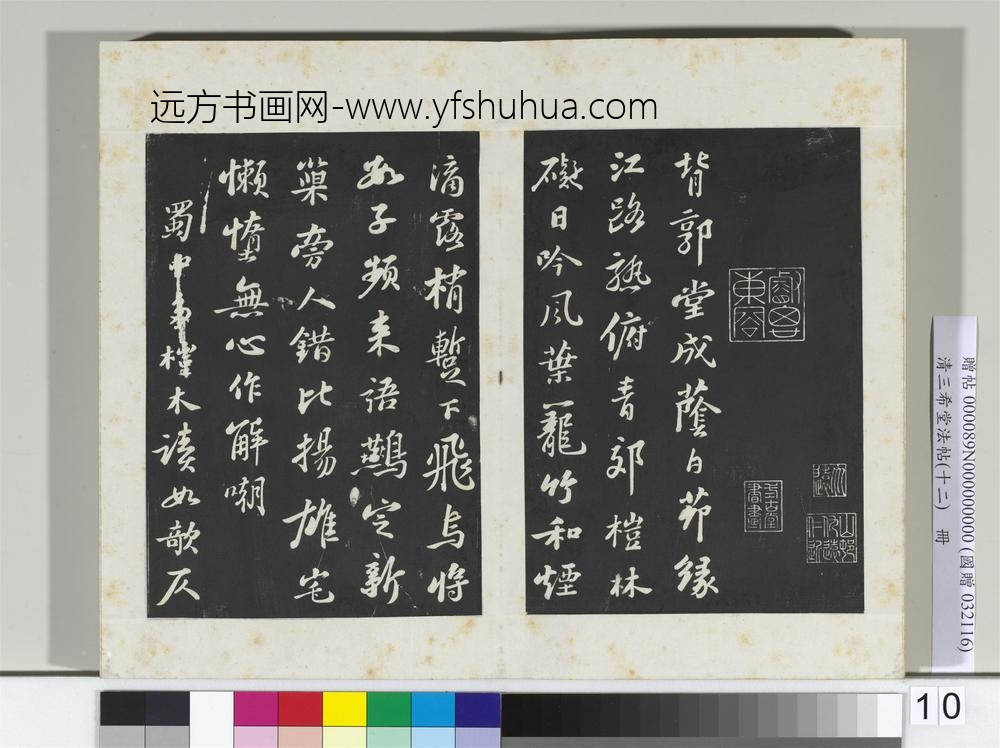 远方书画网-www.yfshuhua.com
背郭堂成蔭白茆緣
江路熟俯青郊榿林
礙日吟風葉籠竹和煙
滴露梢暫下飛烏將
數子頻來語鷰定新
巢旁人錯比揚雄宅
懶惰無心作解嘲
蜀中多榿木讀如欹仄
贈帖 000089N000000000 (國贈 032116)
清三希堂法帖(十二) 冊
10